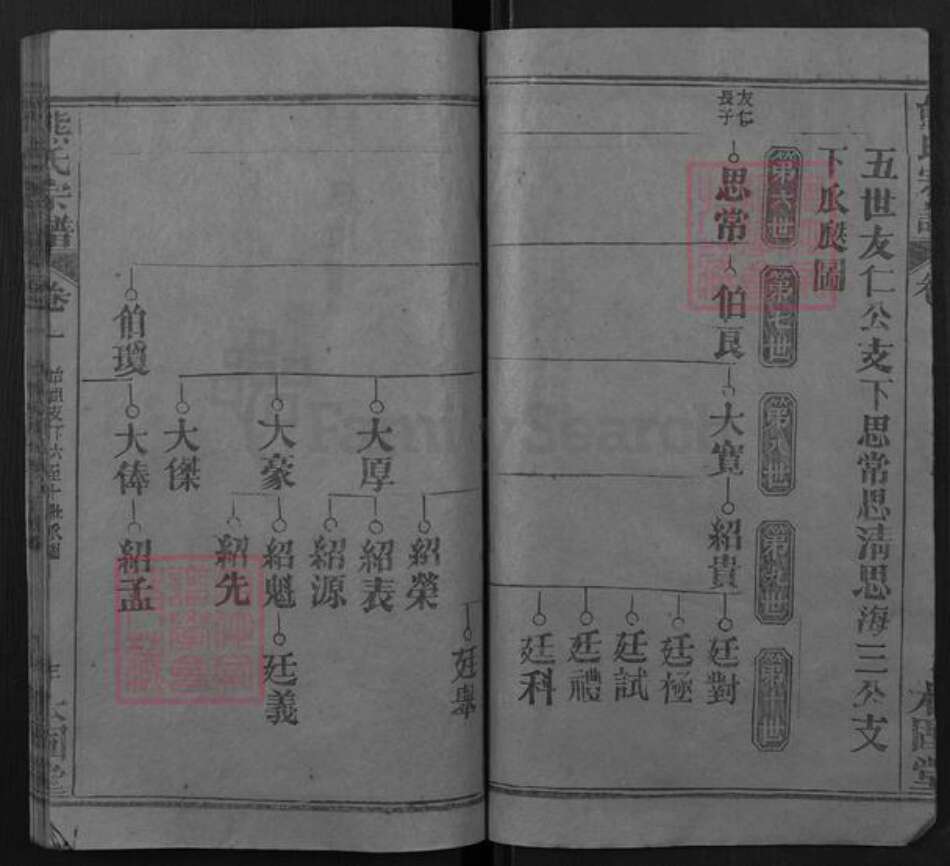 五世友仁公支下思常思清思海三公支
下瓜瓞圖
第六世
第七世
第八世
第九世
第十世
友仁
長子
思常
伯良
大寬
紹貴
廷對
廷極
廷試
廷禮
廷科
廷舉
紹榮
大厚
紹表
紹源
大豪
紹魁
廷義
紹先
大傑
伯瓊
大俸
紹孟
熊氏宗譜
卷一
本固堂
FamilySearch